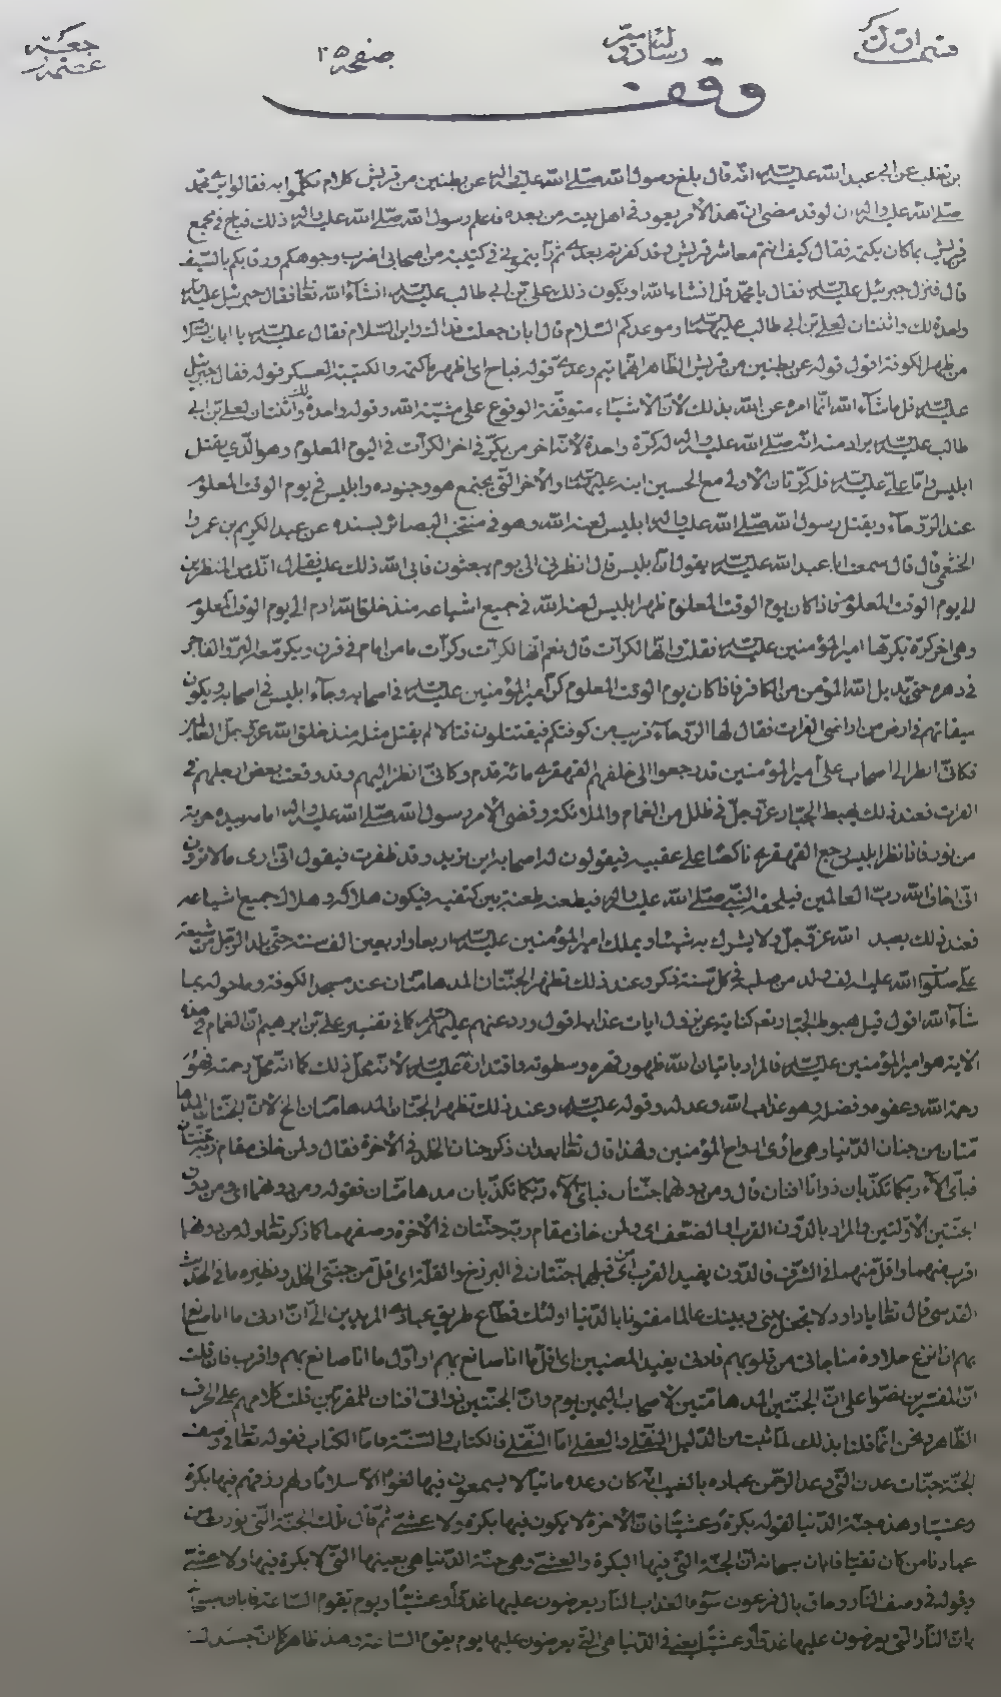 صفحه ۲۵
وقف
بن تغلب عن ابي عبد الله عليه السلام انه قال بلغ رسول الله صلى الله عليه واله عن بطنين من قريش كلام تكلموا به فقالوا يرى محمد
صلى الله عليه واله ان لو قد مضى ان هذا الامر يعود في اهل بيته من بعده فاعلم رسول الله صلى الله عليه واله ذلك فباح في مجمع
من قريش بما كان يكتمه فقال كيف انتم معاشر قريش وقد كفرتم بعدي ثم رأيتموني في كتيبة من اصحابي اضرب وجوهكم ورقابكم بالسيف
قال فنزل جبرئيل عليه السلام فقال يا محمد قل انشاء الله او يكون ذلك علي بن ابي طالب عليه السلام انشاء الله تعالى فقال جبرئيل عليه السلام
واحدة لك واثنتان لعلي بن ابي طالب عليهما السلام وموعدكم السلام قال ابان جعلت فداك واين السلام فقال عليه السلام يا ابان السلام
من ظهر الكوفة اقول قوله عن بطنين من قريش الظاهر انهما تيم وعدي قوله فباح اي اظهر ما كتمه والكتيبة العسكر قوله فقال جبرئيل
عليه السلام قل ما شاء الله انما امره عن الله بذلك لان الاشياء متوقفة الوقوع على مشية الله وقوله واحدة لك واثنتان لعلي بن ابي
طالب عليه السلام يراد منه انه صلى الله عليه واله له كرة واحدة لانه اخر من يكر في اخر الكرات في اليوم المعلوم وهو الذي يقتل
ابليس واما علي عليه السلام فله كرتان الاولى مع الحسين ابنه عليهما السلام والاخر التي يجتمع هو وجنوده وابليس في يوم الوقت المعلوم
عند الروحاء ويقتل رسول الله صلى الله عليه واله ابليس لعنه الله وهو في منتخب البصائر بسنده عن عبد الكريم بن عمرو
الخثعمي قال قال سمعت ابا عبد الله عليه السلام يقول ان ابليس قال انظرني الى يوم يبعثون فابى الله ذلك عليه فقال انك من المنظرين
الى يوم الوقت المعلوم فاذا كان يوم الوقت المعلوم ظهر ابليس لعنه الله في جميع اشياعه منذ خلق الله ادم الى يوم الوقت المعلوم
وهي اخر كرة يكرها امير المؤمنين عليه السلام فقلت وانها لكرات قال نعم انها لكرات وكرات ما من امام في قرن ويكر معه البر والفاجر
في دهره حتى يديل الله المؤمن من الكافر فاذا كان يوم الوقت المعلوم كر امير المؤمنين عليه السلام في اصحابه وجاء ابليس في اصحابه ويكون
ميقاتهم في ارض من اراضي الفرات فقال لها الروحاء قريب من كوفتكم فيقتتلون قتالا لم يقتل مثله منذ خلق الله عز وجل العالمين
فكاني انظر الى اصحاب علي امير المؤمنين قد رجعوا الى خلفهم القهقرى مائة قدم وكاني انظر اليهم وقد وقعت بعض ارجلهم في
الفرات فعند ذلك يهبط الجبار عز وجل في ظلل من الغمام والملائكة وقضي الامر رسول الله صلى الله عليه واله امامه بيده حربة
من نور فاذا نظر ابليس رجع القهقرى ناكصا على عقبيه فيقولون له اصحابه اين تريد وقد ظفرت فيقول اني ارى ما لا ترون
اني اخاف الله رب العالمين فيلحقه النبي صلى الله عليه واله فيطعنه طعنة بين كتفيه فيكون هلاكه وهلاك جميع اشياعه
فعند ذلك يعبد الله عز وجل ولا يشرك به شيئا ويملك امير المؤمنين عليه السلام اربعا واربعين الف سنة حتى يلد الرجل من شيعة
علي صلوات الله عليه الف ولد من صلبه في كل سنة ذكر وعند ذلك تظهر الجنتان المدهامتان عند مسجد الكوفة وما حوله بما
شاء الله اقول قيل هبوط الجبار نعم كناية عن نزول ايات عذابه اقول ورد عنهم عليهم السلام كما في تفسير علي بن ابرهيم ان الغمام في هذه
الاية هو امير المؤمنين عليه السلام فالمراد باتيان الله ظهور قهره وسطوته واقتداره عليه السلام لانه محل ذلك كما انه محل رحمته فهو
رحمة الله وعفوه وفضله وهو عذاب الله وعدله وقوله عليه السلام وعند ذلك تظهر الجنتان المدهامتان الخ لان الجنتان المدها
متان من جنان الدنيا وهي مأوى ارواح المؤمنين ولهذا قال تعالى بعد ان ذكر جنان الخلد في الاخرة فقال ولمن خاف مقام ربه جنتان
فباي الاء ربكما تكذبان ذواتا افنان قال ومن دونهما جنتان فباي الاء ربكما تكذبان مدهامتان فقوله ومن دونهما اي ومن دون
الجنتين الاولتين والمراد بالدون القرب او الضعف اي ولمن خاف مقام ربه جنتان في الاخرة وصفهما كما ذكر تعالى وله من دونهما
اقرب منهما واقل منهما في الشرف فالدون يفيد القرب اي من قبلهما جنتان في البرزخ والقلة اي اقل من جنتي الخلد ونظيره ما في الحديث
القدسي قال تعالى يا داود لا تجعل بيني وبينك عالما مفتونا بالدنيا اولئك قطاع طريق عبادي المريدين الي ان ادنى ما انا صانع
بهم ان انزع حلاوة مناجاتي من قلوبهم فادنى يفيد المعنيين اي اقل ما انا صانع بهم او اول ما انا صانع بهم واقرب فان قلت
ان المفسرين نصوا على ان الجنتين المدهامتين لاصحاب اليمين يوم وان الجنتين ذواتى افنان للمقربين قلت كلامهم على الحرف
الظاهر ونحن انما قلنا بذلك لما ثبت من الدليل النقلي والعقلي اما النقلي فالكتاب والسنة فاما الكتاب فقوله تعالى في وصف
الجنة جنات عدن التي وعد الرحمن عباده بالغيب انه كان وعده ماتيا لا يسمعون فيها لغوا الا سلاما ولهم رزقهم فيها بكرة
وعشيا وهذه جنة الدنيا لقوله بكرة وعشيا فان الاخرة لا يكون فيها بكرة ولا عشي ثم قال تلك الجنة التي نورث من
عبادنا من كان تقيا فابان سبحانه ان الجنة التي فيها البكرة والعشي وهي جنة الدنيا هي بعينها التي لا بكرة فيها ولا عشي
وقوله في وصف النار وحاق بال فرعون سوء العذاب النار يعرضون عليها غدوا وعشيا ويوم تقوم الساعة فابان سبحانه
ان النار التي يعرضون عليها غدوا وعشيا يعني في الدنيا هي التي يعرضون عليها يوم يقوم الساعة وهذا ظاهر